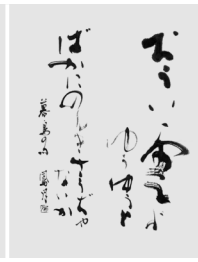 おうい雲よ
ゆうゆうと
ばかにのんきさうぢや
ないか
暮鳥の詩